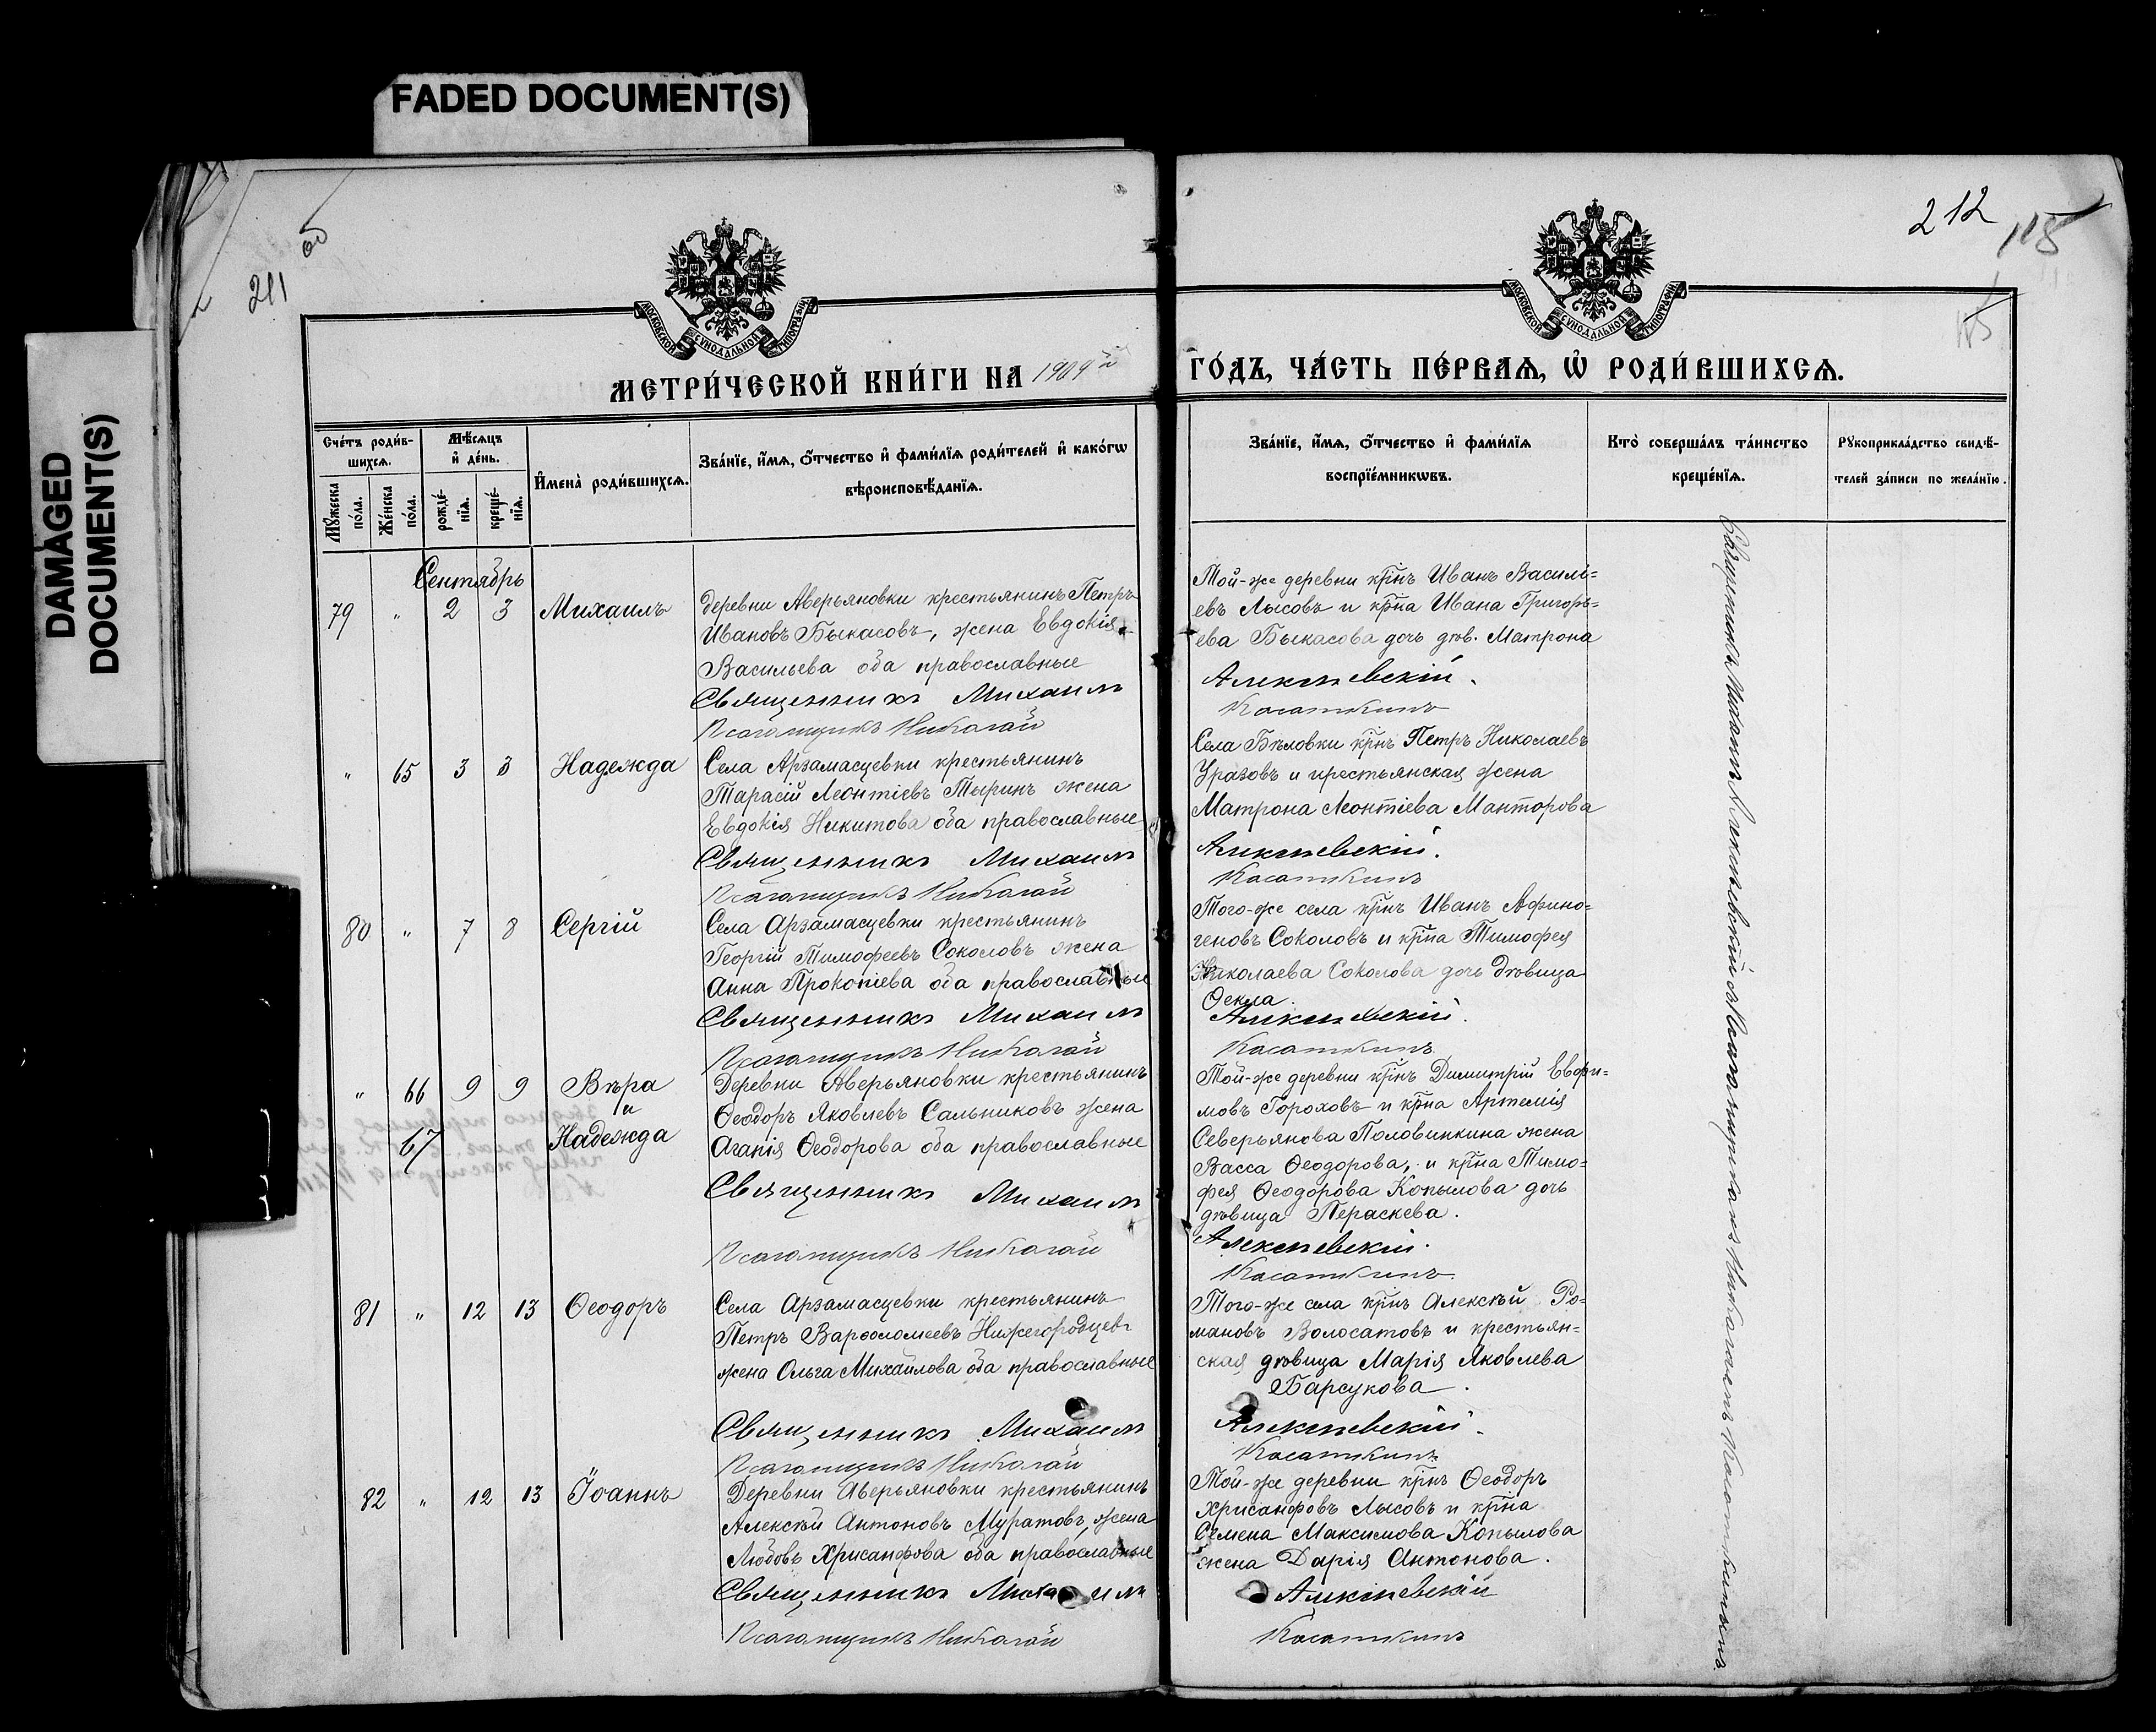 FADED DOCUMENT(S)
DAMAGED
DOCUMENT(S)
211
об
212
115
МОСКОВСКОЙ СУНОДАЛЬНОЙ ТИПОГРАФІИ
МОСКОВСКОЙ СУНОДАЛЬНОЙ ТИПОГРАФІИ
МЕТРИ́ЧЕСКОЙ КНИ́ГИ НА 1909й
ГО́ДЪ, ЧА́СТЬ ПЕ́РВАѦ, Ѡ҆ РОДИ́ВШИХСѦ.
Сче́тъ роди́в-
шихсѧ.
Мѣ́сѧцъ
и҆ де́нь.
Мꙋ́жеска
по́ла.
Же́нска
по́ла.
рожде́-
нїѧ.
креще́-
нїѧ.
И҆мена̀ роди́вшихсѧ.
Зва́нїе, и҆́мѧ, ѻ҆́тчество и҆ фами́лїѧ роди́телей и҆ како́гѡ
вѣроисповѣ́данїѧ.
Зва́нїе, и҆́мѧ, ѻ҆́тчество и҆ фами́лїѧ
воспрїе́мникѡвъ.
Кто̀ соверша́лъ та́инство
креще́нїѧ.
Рꙋкоприкла́дство свидѣ́-
телей за́писи по жела́нїю.
Сентябрь
79 " 2 3 Михаилъ
деревни Аверьяновки крестьянинъ Петръ
Ивановъ Быкасовъ, жена Евдокія
Васильева оба православные
Священникъ Михаилъ
Псаломщикъ Николай
Той-же деревни крнъ Иванъ Василі=
евъ Лысовъ и крна Ивана Григорь=
ева Быкасова дочь дѣв. Матрона
Алексѣевскій.
Касаткинъ
" 65 3 3 Надежда
Села Арзамасцевки крестьянинъ
Тарасій Леонтіевъ Тыринъ жена
Евдокія Никитова оба православные
Священникъ Михаилъ
Псаломщикъ Николай
Села Бѣловки крнъ Петръ Николаевъ
Уразовъ и крестьянская жена
Матрона Леонтіева Манторова
Алексѣевскій.
Касаткинъ
80 " 7 8 Сергій
Села Арзамасцевки крестьянинъ
Георгій Тимофеевъ Соколовъ жена
Анна Прокопіева оба православные
Священникъ Михаилъ
Псаломщикъ Николай
Того-же села крнъ Иванъ Афино=
геновъ Соколовъ и крна Тимофея
Николаева Соколова дочь дѣвица
Ѳекла.
Алексѣевскій.
Касаткинъ
" 66 9 9 Вѣра
и
67 Надежда
Деревни Аверьяновки крестьянинъ
Ѳеодоръ Яковлевъ Сальниковъ жена
Агапія Ѳеодорова оба православные
Священникъ Михаилъ
Псаломщикъ Николай
Той-же деревни крнъ Димитрій Евфи=
мовъ Гороховъ и крна Артемія
Северьянова Половинкина жена
Васса Ѳеодорова, и крна Тимо=
фея Ѳеодорова Копылова дочь
дѣвица Пераскева.
Алексѣевскій.
Касаткинъ
81 " 12 13 Ѳеодоръ
Села Арзамасцевки крестьянинъ
Петръ Варѳоломеевъ Нижегородцевъ
жена Ольга Михайлова оба православные
Священникъ Михаилъ
Псаломщикъ Николай
Того-же села крнъ Алексѣй Ро=
мановъ Волосатовъ и крестьян=
ская дѣвица Марія Яковлева
Барсукова.
Алексѣевскій.
Касаткинъ
82 " 12 13 Іоаннъ
Деревни Аверьяновки крестьянинъ
Алексѣй Антоновъ Муратовъ, жена
Любовь Хрисанфова оба православные
Священникъ Михаилъ
Псаломщикъ Николай
Той-же деревни крнъ Ѳеодоръ
Хрисанфовъ Лысовъ и крна
Семена Максимова Копылова
жена Дарія Антонова.
Алексѣевскій
Касаткинъ
Священникъ Михаилъ Алексѣевскій съ Псаломщикомъ Николаемъ Касаткинымъ.